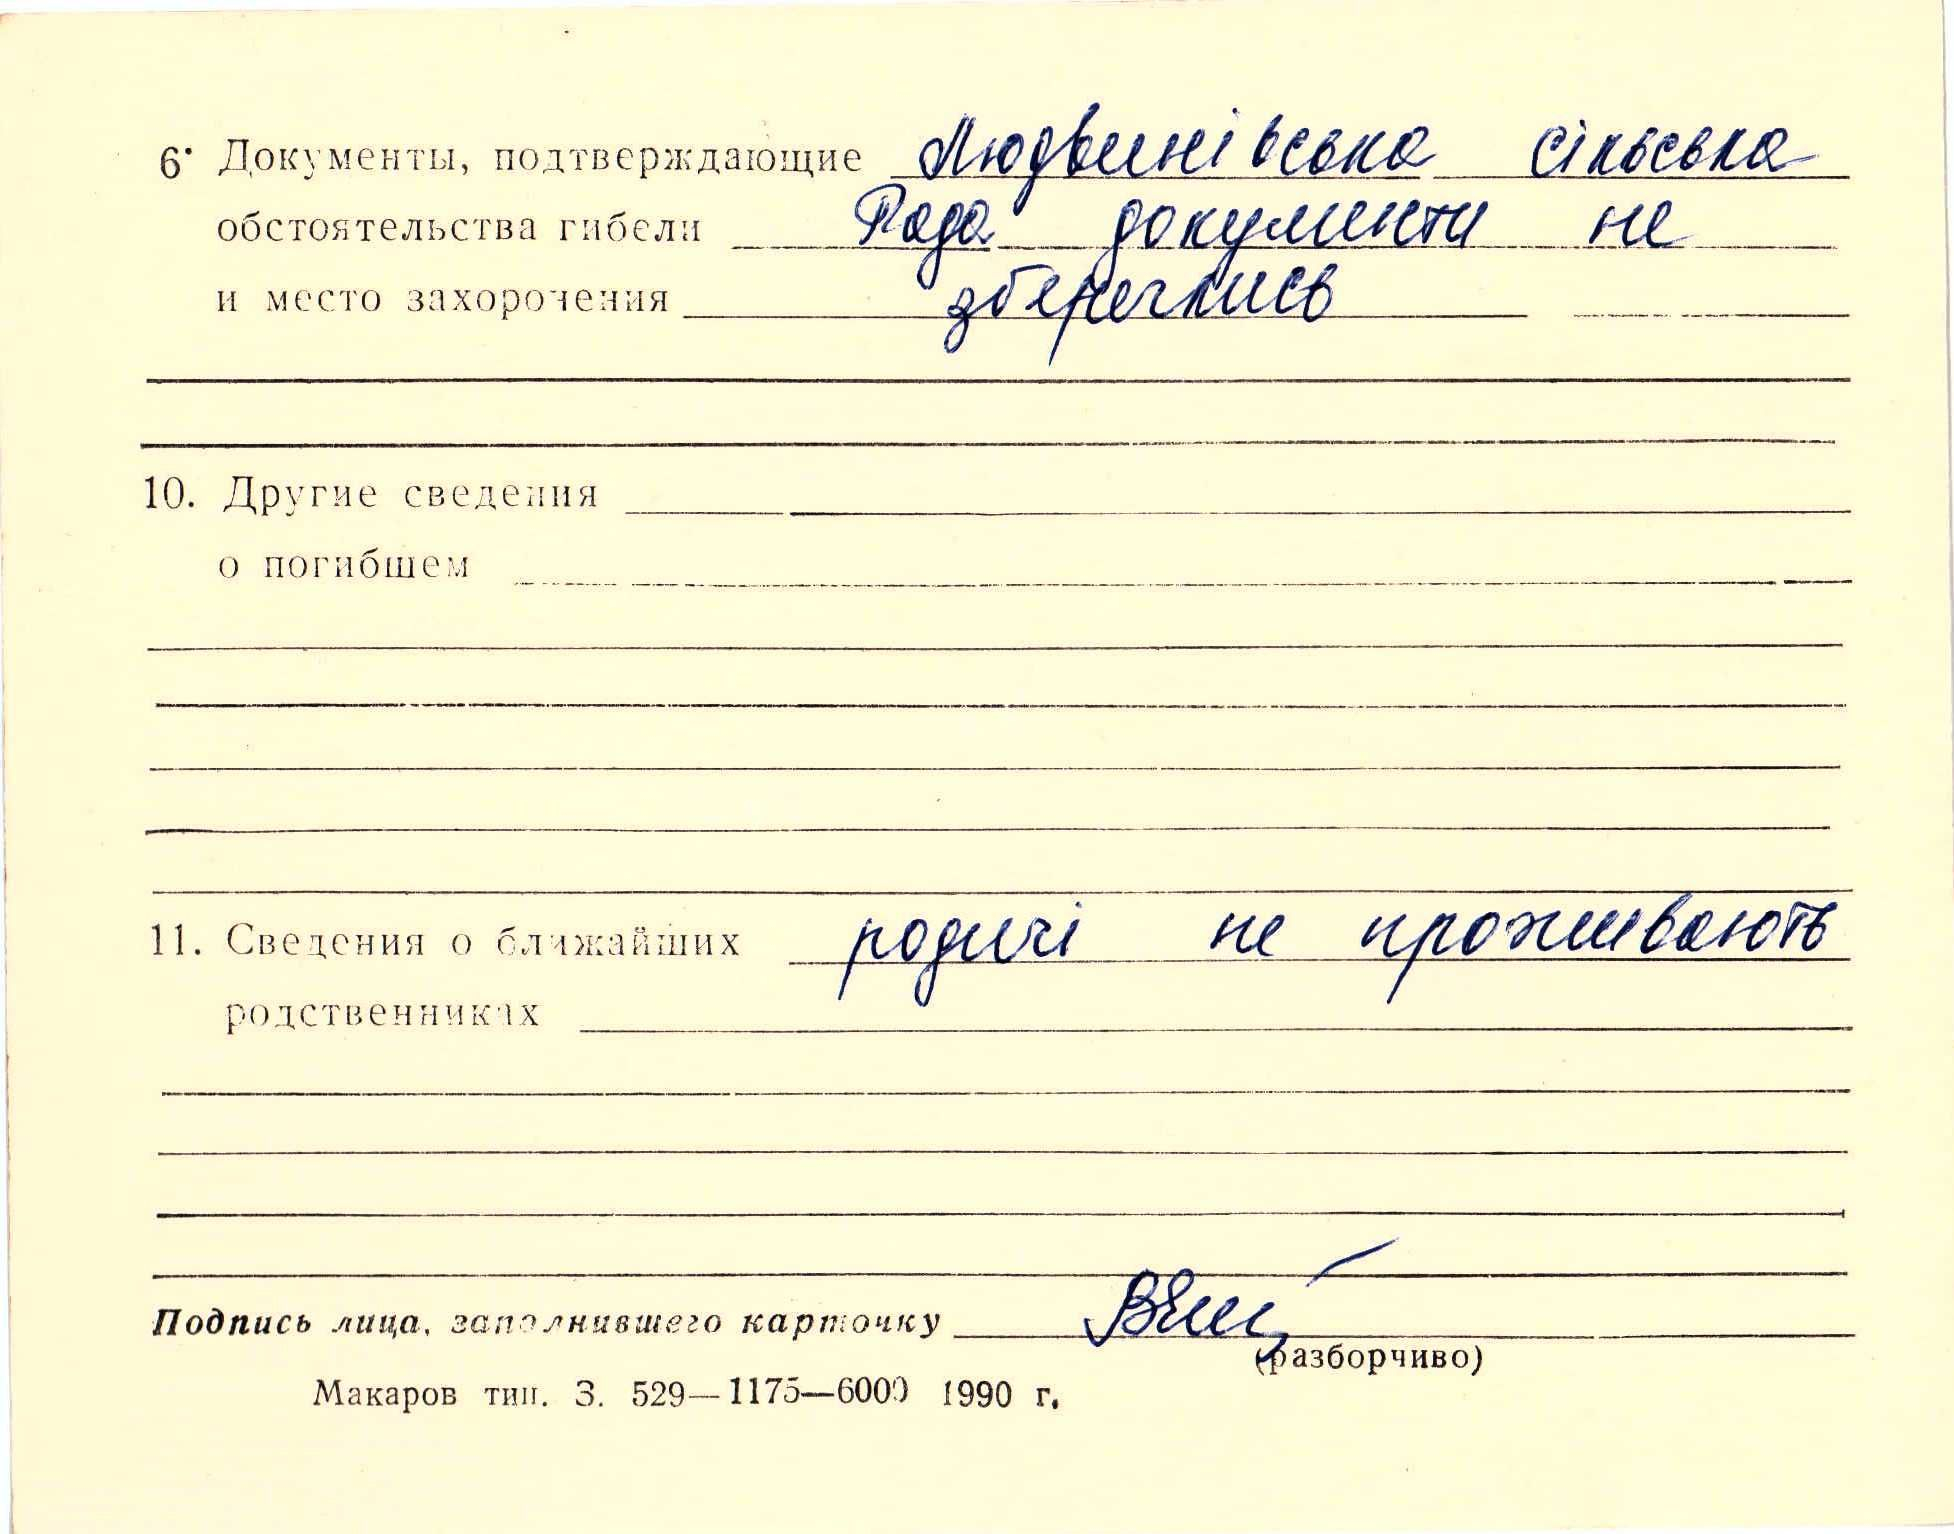 6. Документы, подтверждающие Людвинівська сільська
обстоятельства гибели Рада документи не
и место захоронения збереглись
10. Другие сведения
о погибшем
11. Сведения о ближайших родичі не проживають
родственниках
Подпись лица, заполнившего карточку
(разборчиво)
Макаров тип. З. 529—1175—6000 1990 г.